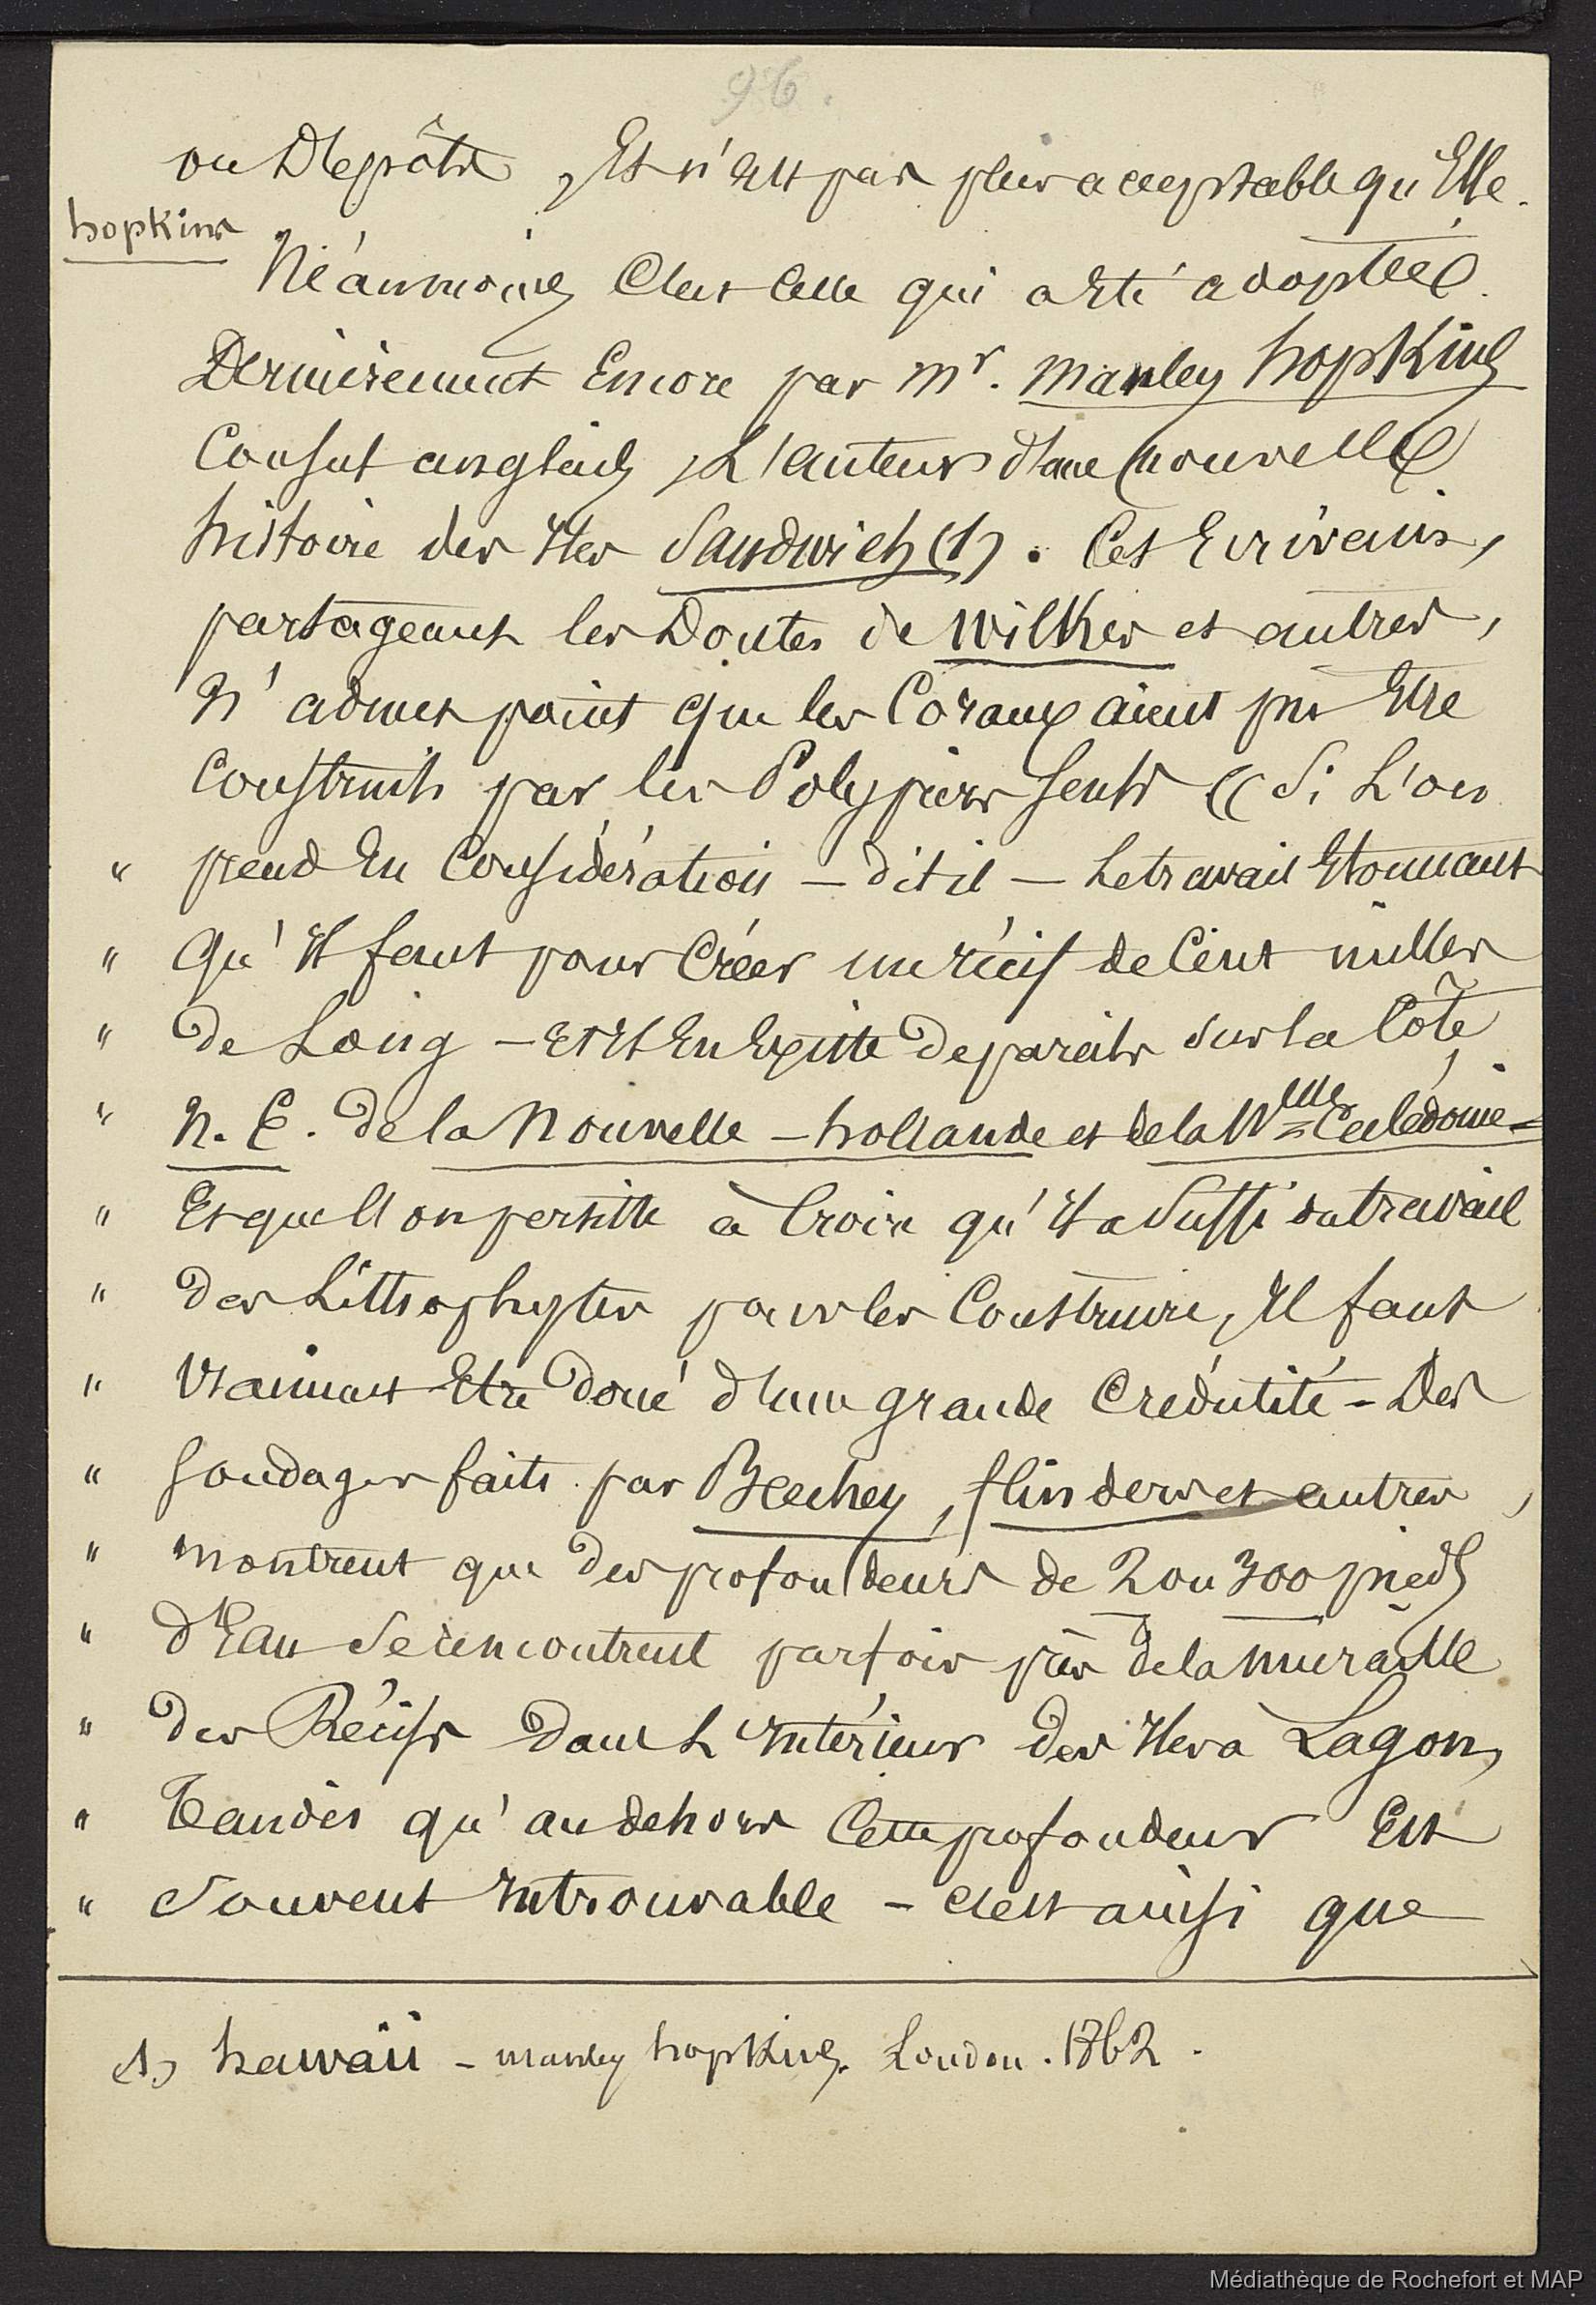 96.
ou Dépôts, Et n'est pas plus acceptable qu'Elle.
hopkins
Néanmoins C'est celle qui a été adoptée
Dernièrement Encore par Mr. Manley hopkins
Consul anglais, L'auteur d'une nouvelle
histoire des Iles Sandwich (1). Cet Ecrivain,
partageant les Doutes de Wilkes et autres,
N'admet point que les Coraux aient pu Etre
Construits par les Polypiers seuls (( Si L'on
" prend En Considération – dit il – Le travail Etonnant
" Qu'Il faut pour Créer un récif de Cent milles
" De Long – Et Il En Existe de pareils sur la Côte
" N. E. de la Nouvelle – hollande et de la Nlle Calédonie –
" Et que l'on persiste à Croire qu'Il a Suffi du travail
" Des Lithophytes pour les Construire, Il faut
" Vraiment Etre Doué d'une grande Crédulité – Des
" Sondages faits par Beechey, flinders et autres,
" montrent que Des profondeurs de 2 ou 300 pieds
" d'Eau Se rencontrent parfois près de la muraille
" Des Récifs Dans L'Intérieur Des Iles à Lagon,
" Tandis qu'au dehors Cette profondeur Est
" Souvent Introuvable – C'est ainsi que
(1) hawaïi – manley hopkins. London. 1862.
Médiathèque de Rochefort et MAP